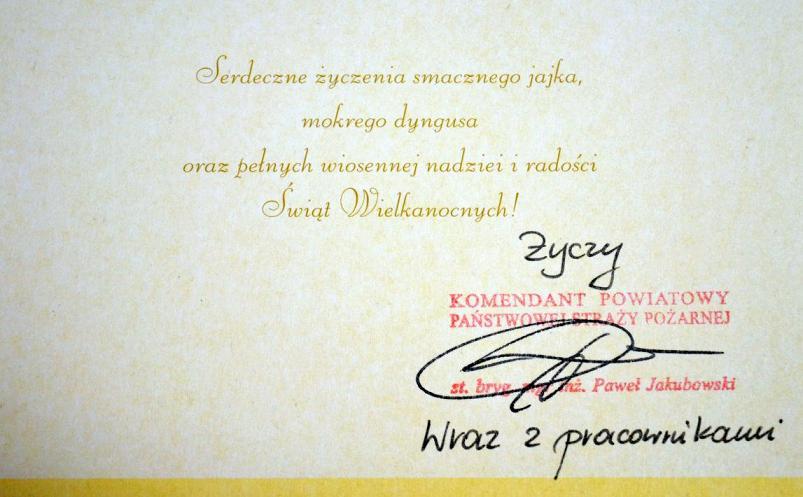 Serdeczne życzenia smacznego jajka,
mokrego dyngusa
oraz pełnych wiosennej nadziei i radości
Świąt Wielkanocnych!
Życzy
KOMENDANT POWIATOWY
PAŃSTWOWEJ STRAŻY POŻARNEJ
st. bryg. mgr inż. Paweł Jakubowski
Wraz z pracownikami